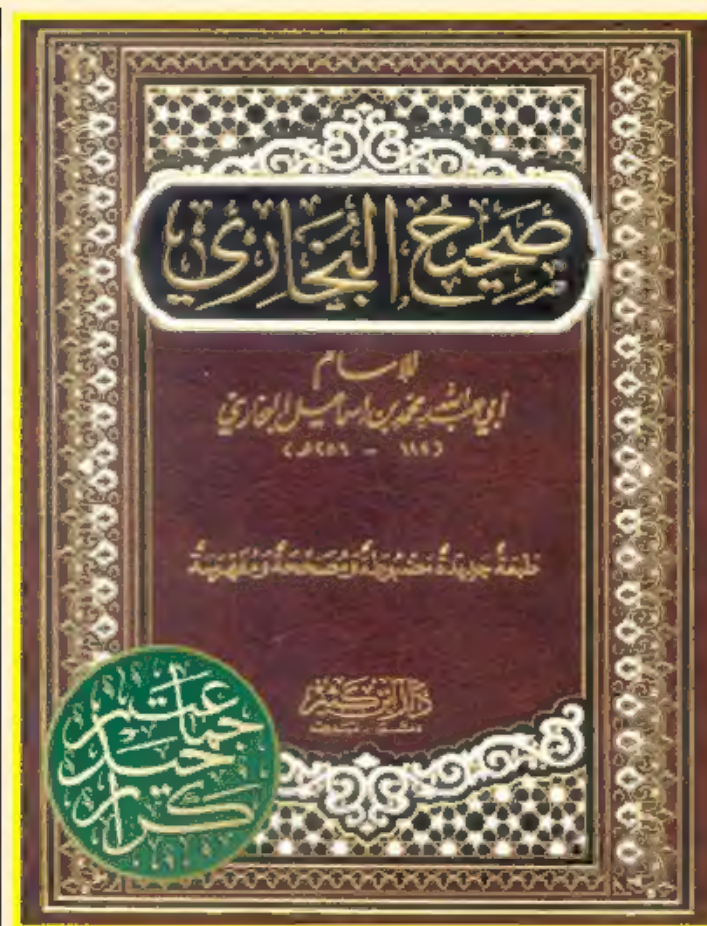 صَحِيحُ الْبُخَارِيِّ
للإمام
أبي عبد الله محمد بن إسماعيل البخاري
طَبْعَةٌ جَدِيدَةٌ مَضْبُوطَةٌ وَمُصَحَّحَةٌ وَمُفَهْرَسَةٌ
دار ابن كثير
دمشق - بيروت
حيدر كرار